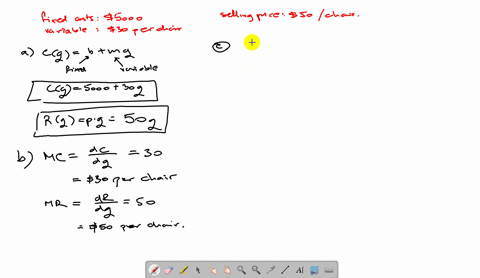 fixed costs: $5000
variable : $30 per chair
selling price: $50 / chair.
a) C(q) = b + mq
fixed variable
C(q) = 5000 + 30q
R(q) = p·q = 50q
b) MC = dC/dq = 30
= $30 per chair
MR = dR/dq = 50
= $50 per chair.
c)